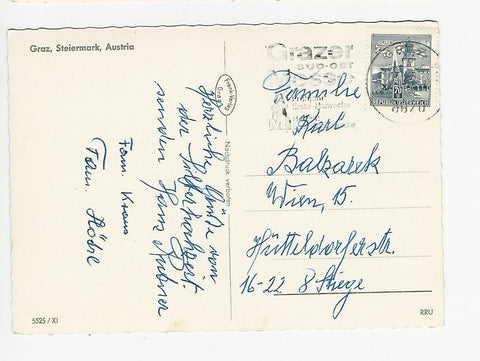 Graz, Steiermark, Austria
Herzliche Grüße von
der Silberhochzeit.
senden Hans
Fam. Kraus
Fam.
Nachdruck verboten
Franz-Verlag
Graz
5525 / XI
Grazer
SÜD-OST
Messe
Erste Maiwoche
REPUBLIK ÖSTERREICH
Familie
Karl
Balzarek
Wien, 15.
Hütteldorferstr.
16-22 8 Stiege
RRU